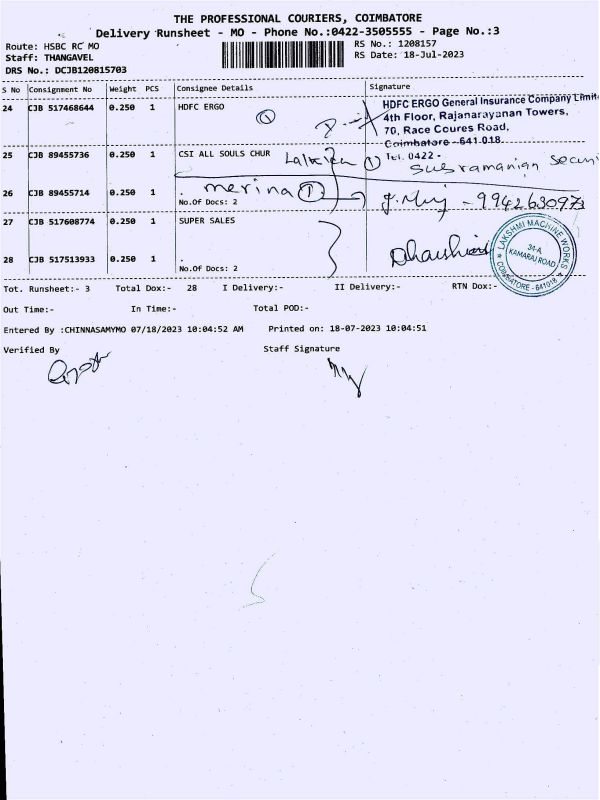 THE PROFESSIONAL COURIERS, COIMBATORE
Delivery Runsheet - MO - Phone No.:0422-3505555 - Page No.:3
Route: HSBC RC MO
RS No.: 1208157
Staff: THANGAVEL
RS Date: 18-Jul-2023
DRS No.: DCJB120815703
S No Consignment No Weight PCS Consignee Details Signature
24 CJB 517468644 0.250 1 HDFC ERGO
①
HDFC ERGO General Insurance Company Limit
4th Floor, Rajanarayanan Towers,
70, Race Coures Road,
Coimbatore - 641 018.
Tel. 0422 -
25 CJB 89455736 0.250 1 CSI ALL SOULS CHUR
①
Subramanian Secur
26 CJB 89455714 0.250 1 .
merina ①
No.Of Docs: 2
- 9942630973
27 CJB 517608774 0.250 1 SUPER SALES
28 CJB 517513933 0.250 1 .
No.Of Docs: 2
LAKSHMI MACHINE WORKS
34-A,
KAMARAJ ROAD
COIMBATORE - 641018
Tot. Runsheet:- 3 Total Dox:- 28 I Delivery:- II Delivery:- RTN Dox:-
Out Time:- In Time:- Total POD:-
Entered By :CHINNASAMYMO 07/18/2023 10:04:52 AM Printed on: 18-07-2023 10:04:51
Verified By Staff Signature